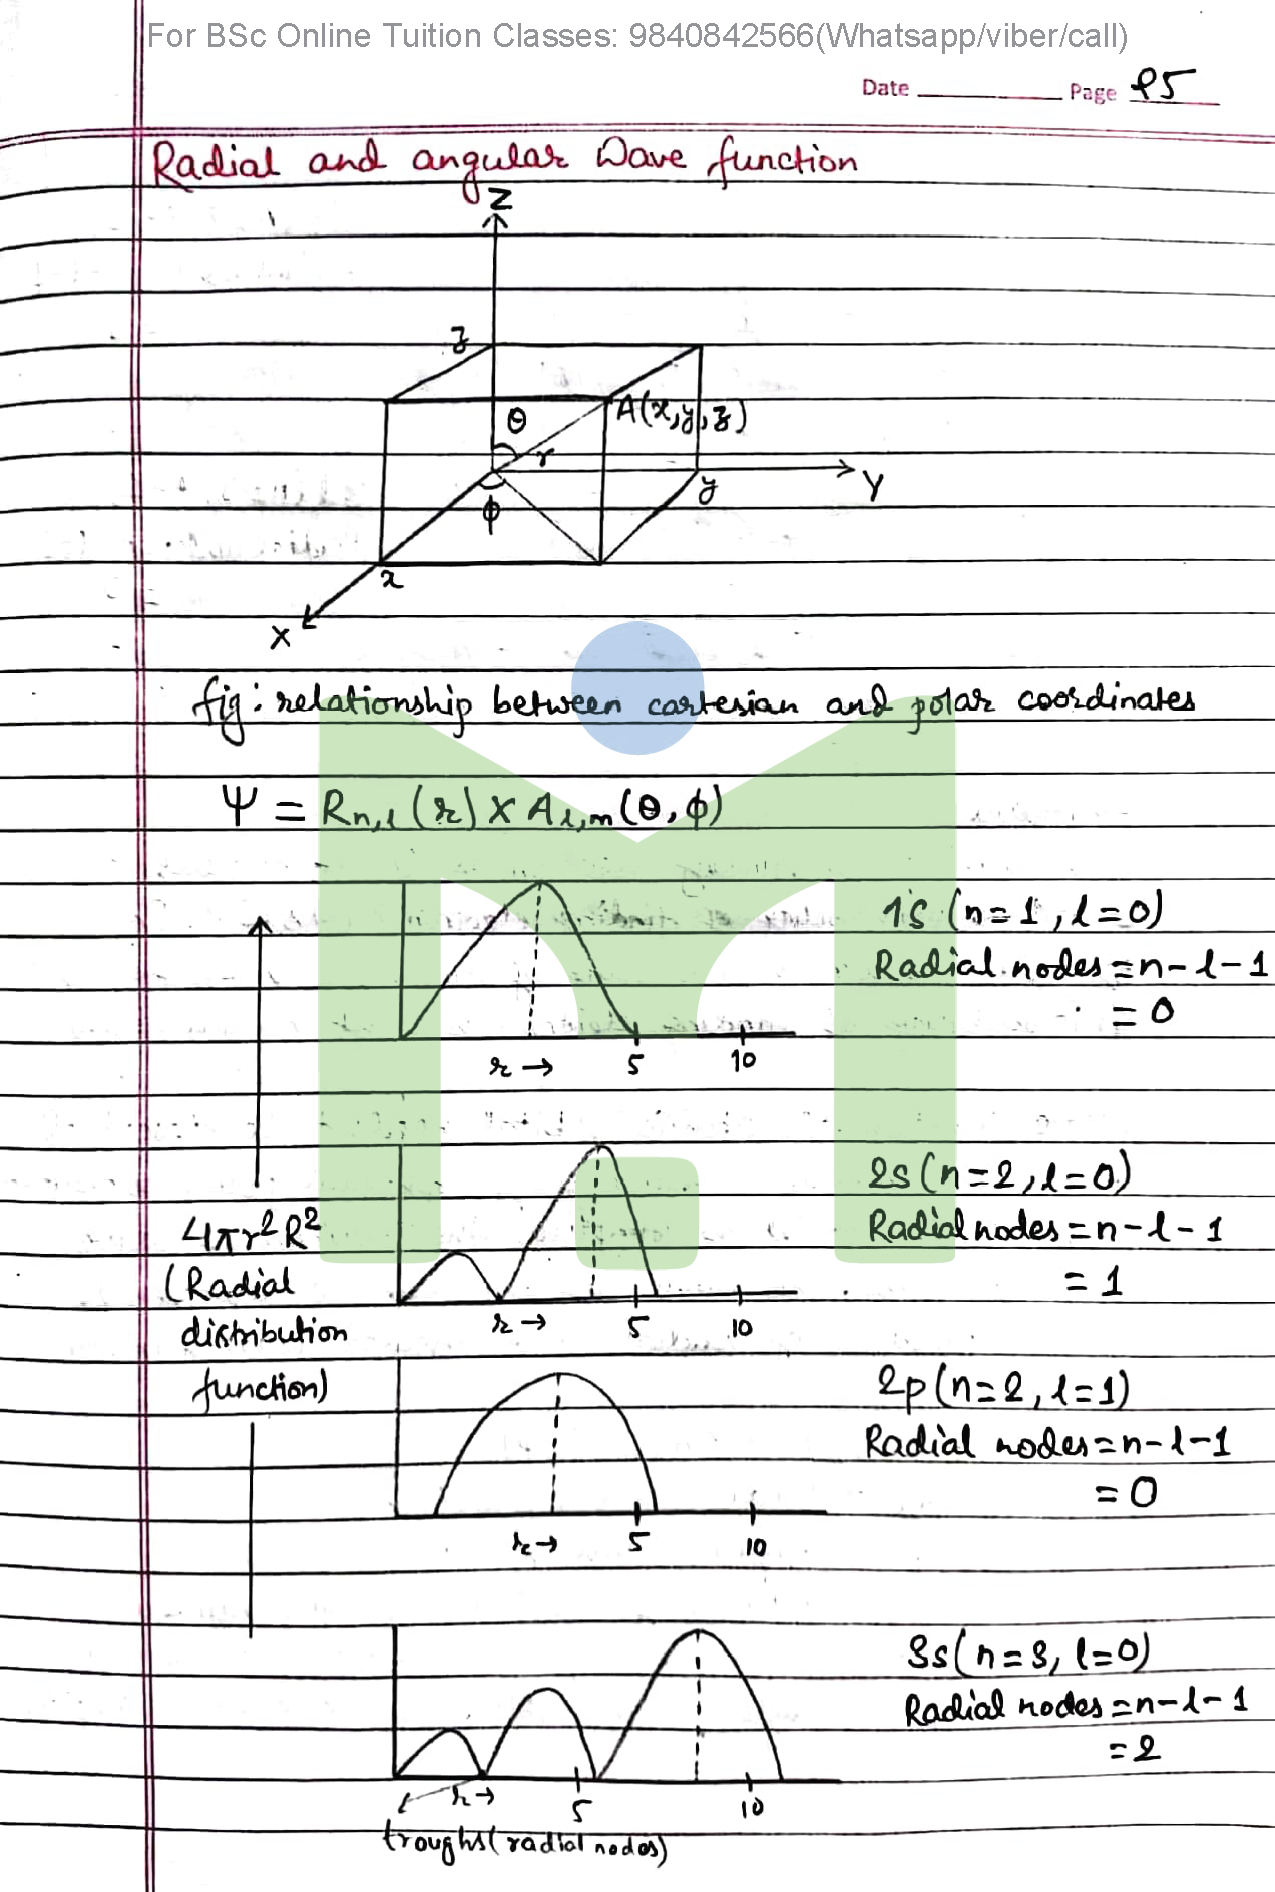 For BSc Online Tuition Classes: 9840842566(Whatsapp/viber/call)
Date ________ Page 85
Radial and angular Wave function
Z
z
θ
A(x,y,z)
r
Y
y
ϕ
x
X
fig: relationship between cartesian and polar coordinates
Ψ = Rn,l (r) X Al,m (θ, ϕ)
1S (n=1, l=0)
Radial nodes = n-l-1
= 0
r → 5 10
2s (n=2, l=0)
Radial nodes = n-l-1
= 1
4πr²R²
(Radial
distribution
function)
r → 5 10
2p (n=2, l=1)
Radial nodes = n-l-1
= 0
r → 5 10
3s (n=3, l=0)
Radial nodes = n-l-1
= 2
r → 5 10
troughs (radial nodes)